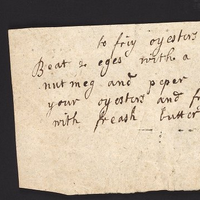 to friy oyesters
Beat 2 eges with a
nutmeg and peper
your oyesters and f
with freash butter